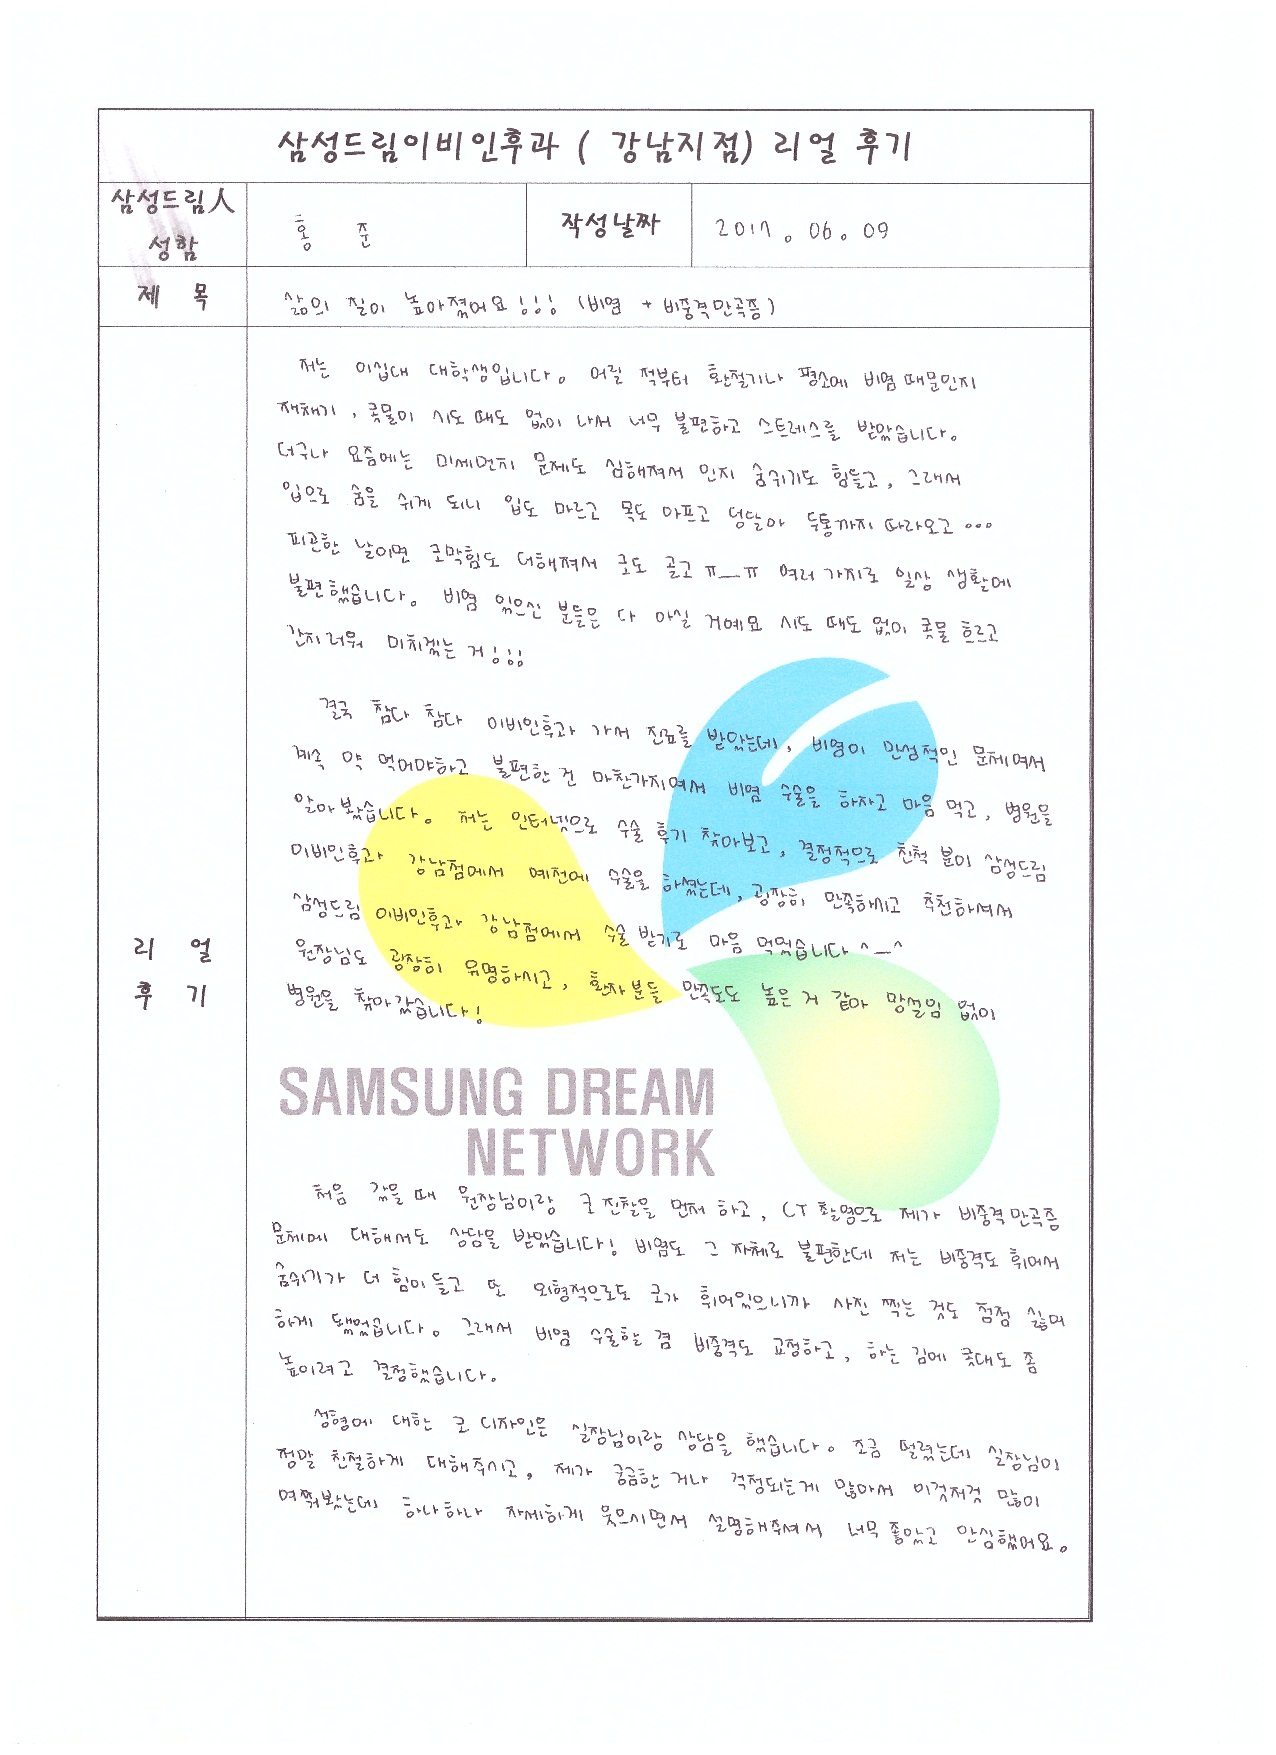 삼성드림이비인후과 ( 강남지점) 리얼 후기
삼성드림人
성함
홍 준
작성날짜
2017. 06. 09
제 목
삶의 질이 높아졌어요!!! (비염 + 비중격만곡증)
저는 이십대 대학생입니다. 어릴 적부터 환절기나 평소에 비염 때문인지
재채기, 콧물이 시도 때도 없이 나서 너무 불편하고 스트레스를 받았습니다.
더구나 요즘에는 미세먼지 문제도 심해져서 인지 숨쉬기도 힘들고, 그래서
입으로 숨을 쉬게 되니 입도 마르고 목도 아프고 덩달아 두통까지 따라오고...
피곤한 날이면 코막힘도 더해져서 코도 골고 ㅠ_ㅠ 여러 가지로 일상 생활에
불편했습니다. 비염 있으신 분들은 다 아실 거예요 시도 때도 없이 콧물 흐르고
간지러워 미치겠는 거!!!
결국 참다 참다 이비인후과 가서 진료를 받았는데, 비염이 만성적인 문제여서
계속 약 먹어야하고 불편한 건 마찬가지여서 비염 수술을 하자고 마음 먹고, 병원을
알아봤습니다. 저는 인터넷으로 수술 후기 찾아보고, 결정적으로 친척 분이 삼성드림
이비인후과 강남점에서 예전에 수술을 하셨는데, 굉장히 만족하시고 추천하셔서
삼성드림 이비인후과 강남점에서 수술 받기로 마음 먹었습니다 ^_^
원장님도 굉장히 유명하시고, 환자분들 만족도도 높은 거 같아 망설임 없이
병원을 찾아갔습니다!
리 얼
후 기
SAMSUNG DREAM
NETWORK
처음 갔을 때 원장님이랑 코 진찰을 먼저 하고, CT 촬영으로 제가 비중격만곡증
문제에 대해서도 상담을 받았습니다! 비염도 그 자체로 불편한데 저는 비중격도 휘어서
숨쉬기가 더 힘이들고 또 외형적으로도 코가 휘어있으니까 사진 찍는 것도 점점 싫어
하게 됐었습니다. 그래서 비염 수술할 겸 비중격도 교정하고, 하는 김에 콧대도 좀
높이려고 결정했습니다.
성형에 대한 코 디자인은 실장님이랑 상담을 했습니다. 조금 떨렸는데 실장님이
정말 친절하게 대해주시고, 제가 궁금한 거나 걱정되는게 많아서 이것저것 많이
여쭤봤는데 하나하나 자세하게 웃으시면서 설명해주셔서 너무 좋았고 안심했어요.